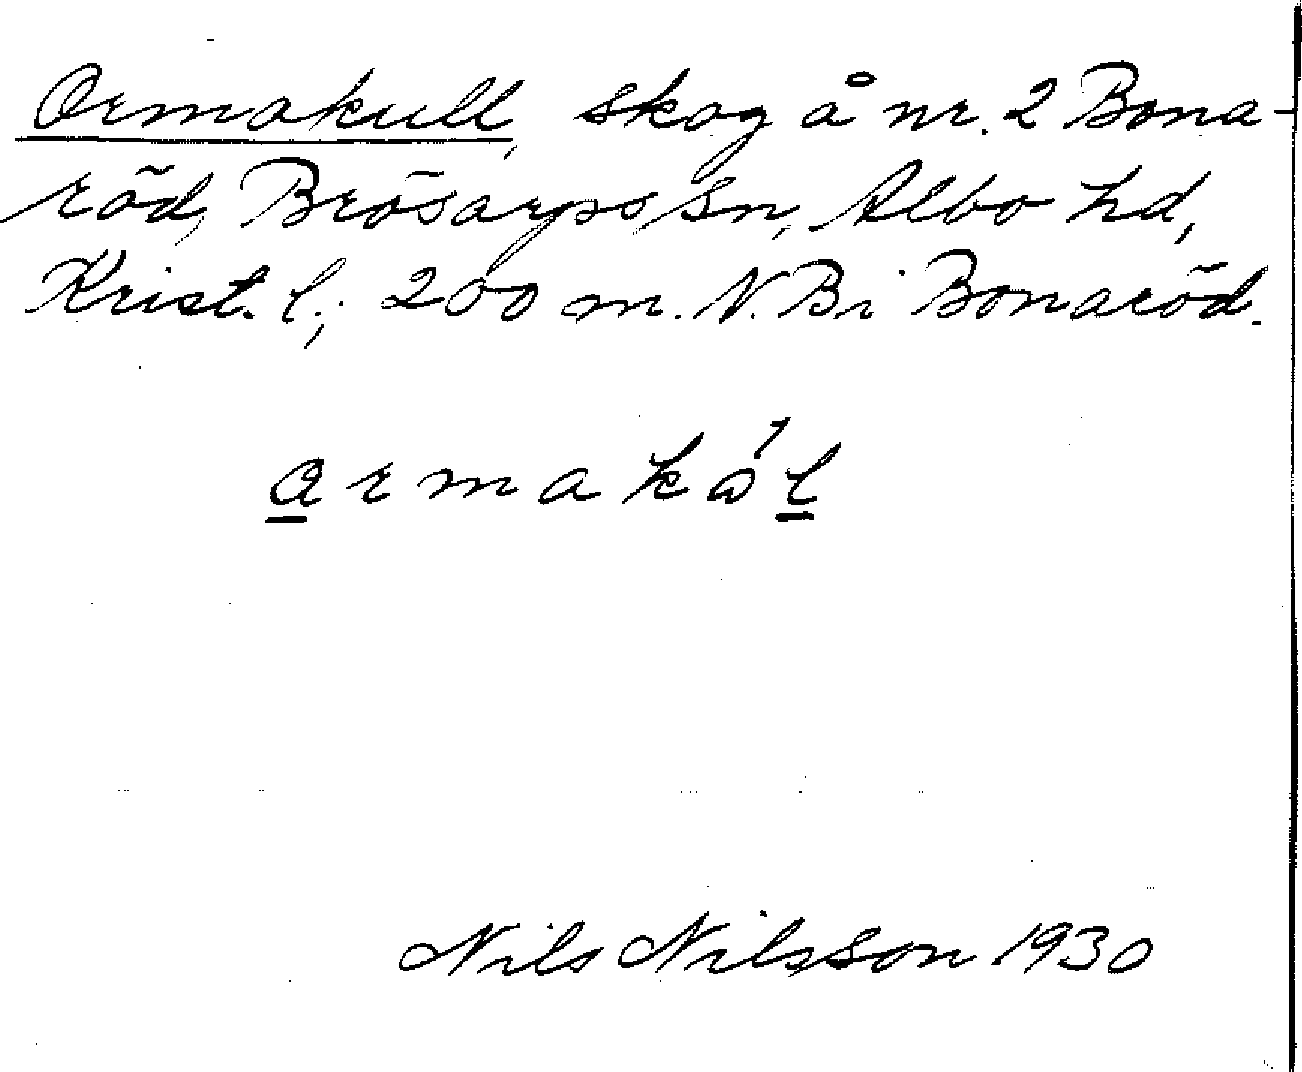 Ormakull, skog å nr. 2 Bona-
röd, Brösarps sn, Albo hd,
Krist. l.; 200 m. N. Bi Bonaröd.
armakål
Nils Nilsson 1930